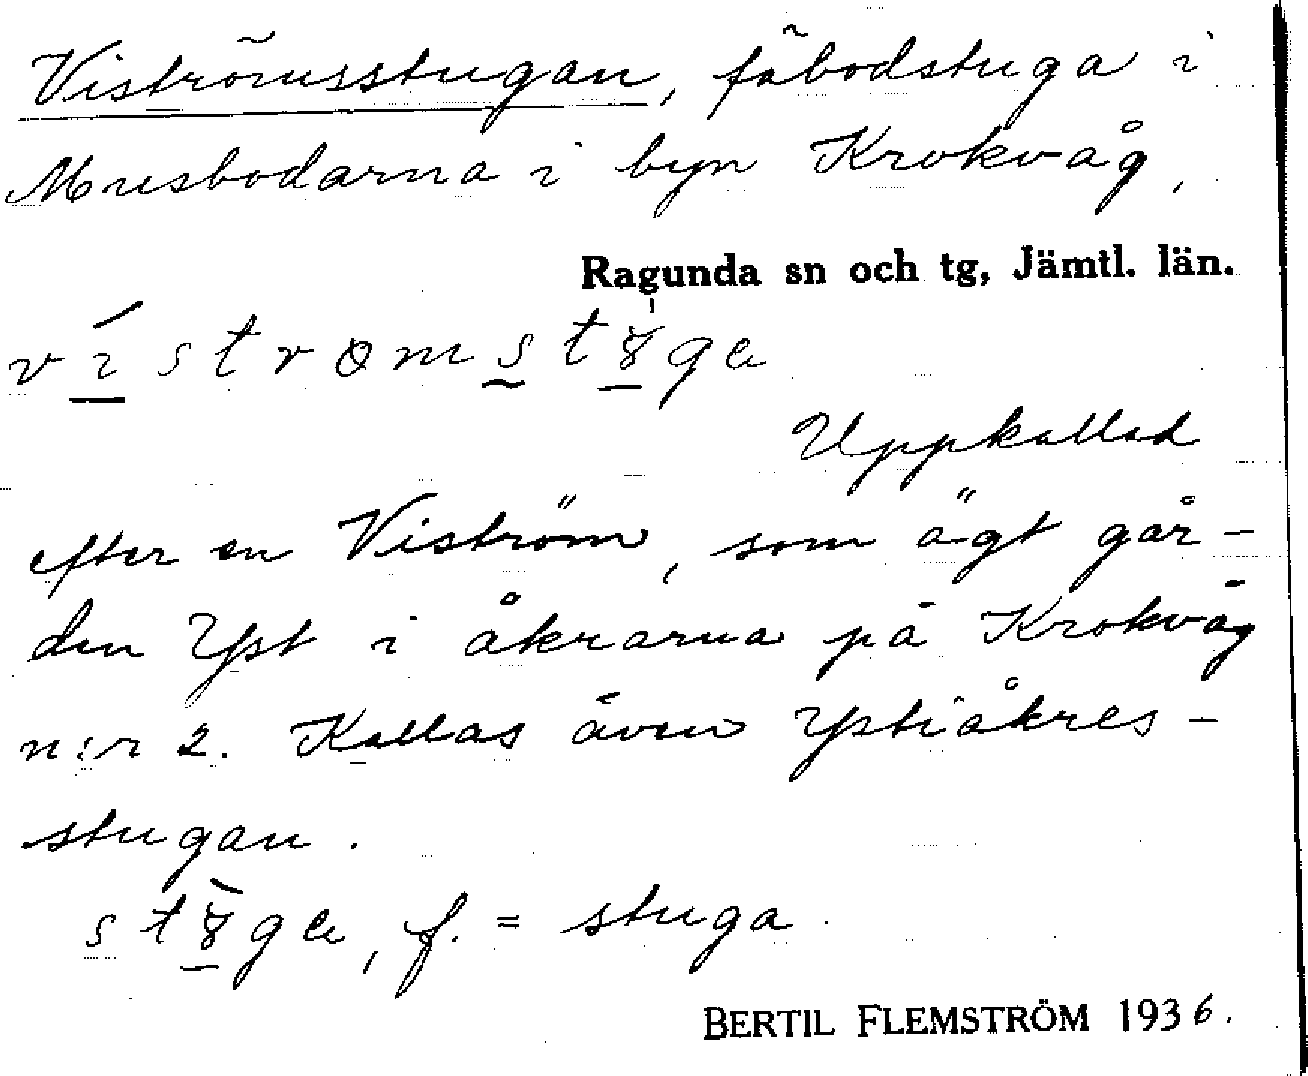 Viströmsstugan, fäbodstuga i
Musbodarna i byn Krokvåg,
Ragunda sn och tg, Jämtl. län.
Uppkallad
efter en Viström, som ägt går-
den Yst i åkrarna på Krokvåg
n:r 2. Kallas även Ystiåkres-
stugan.
f. = stuga
BERTIL FLEMSTRÖM 1936.